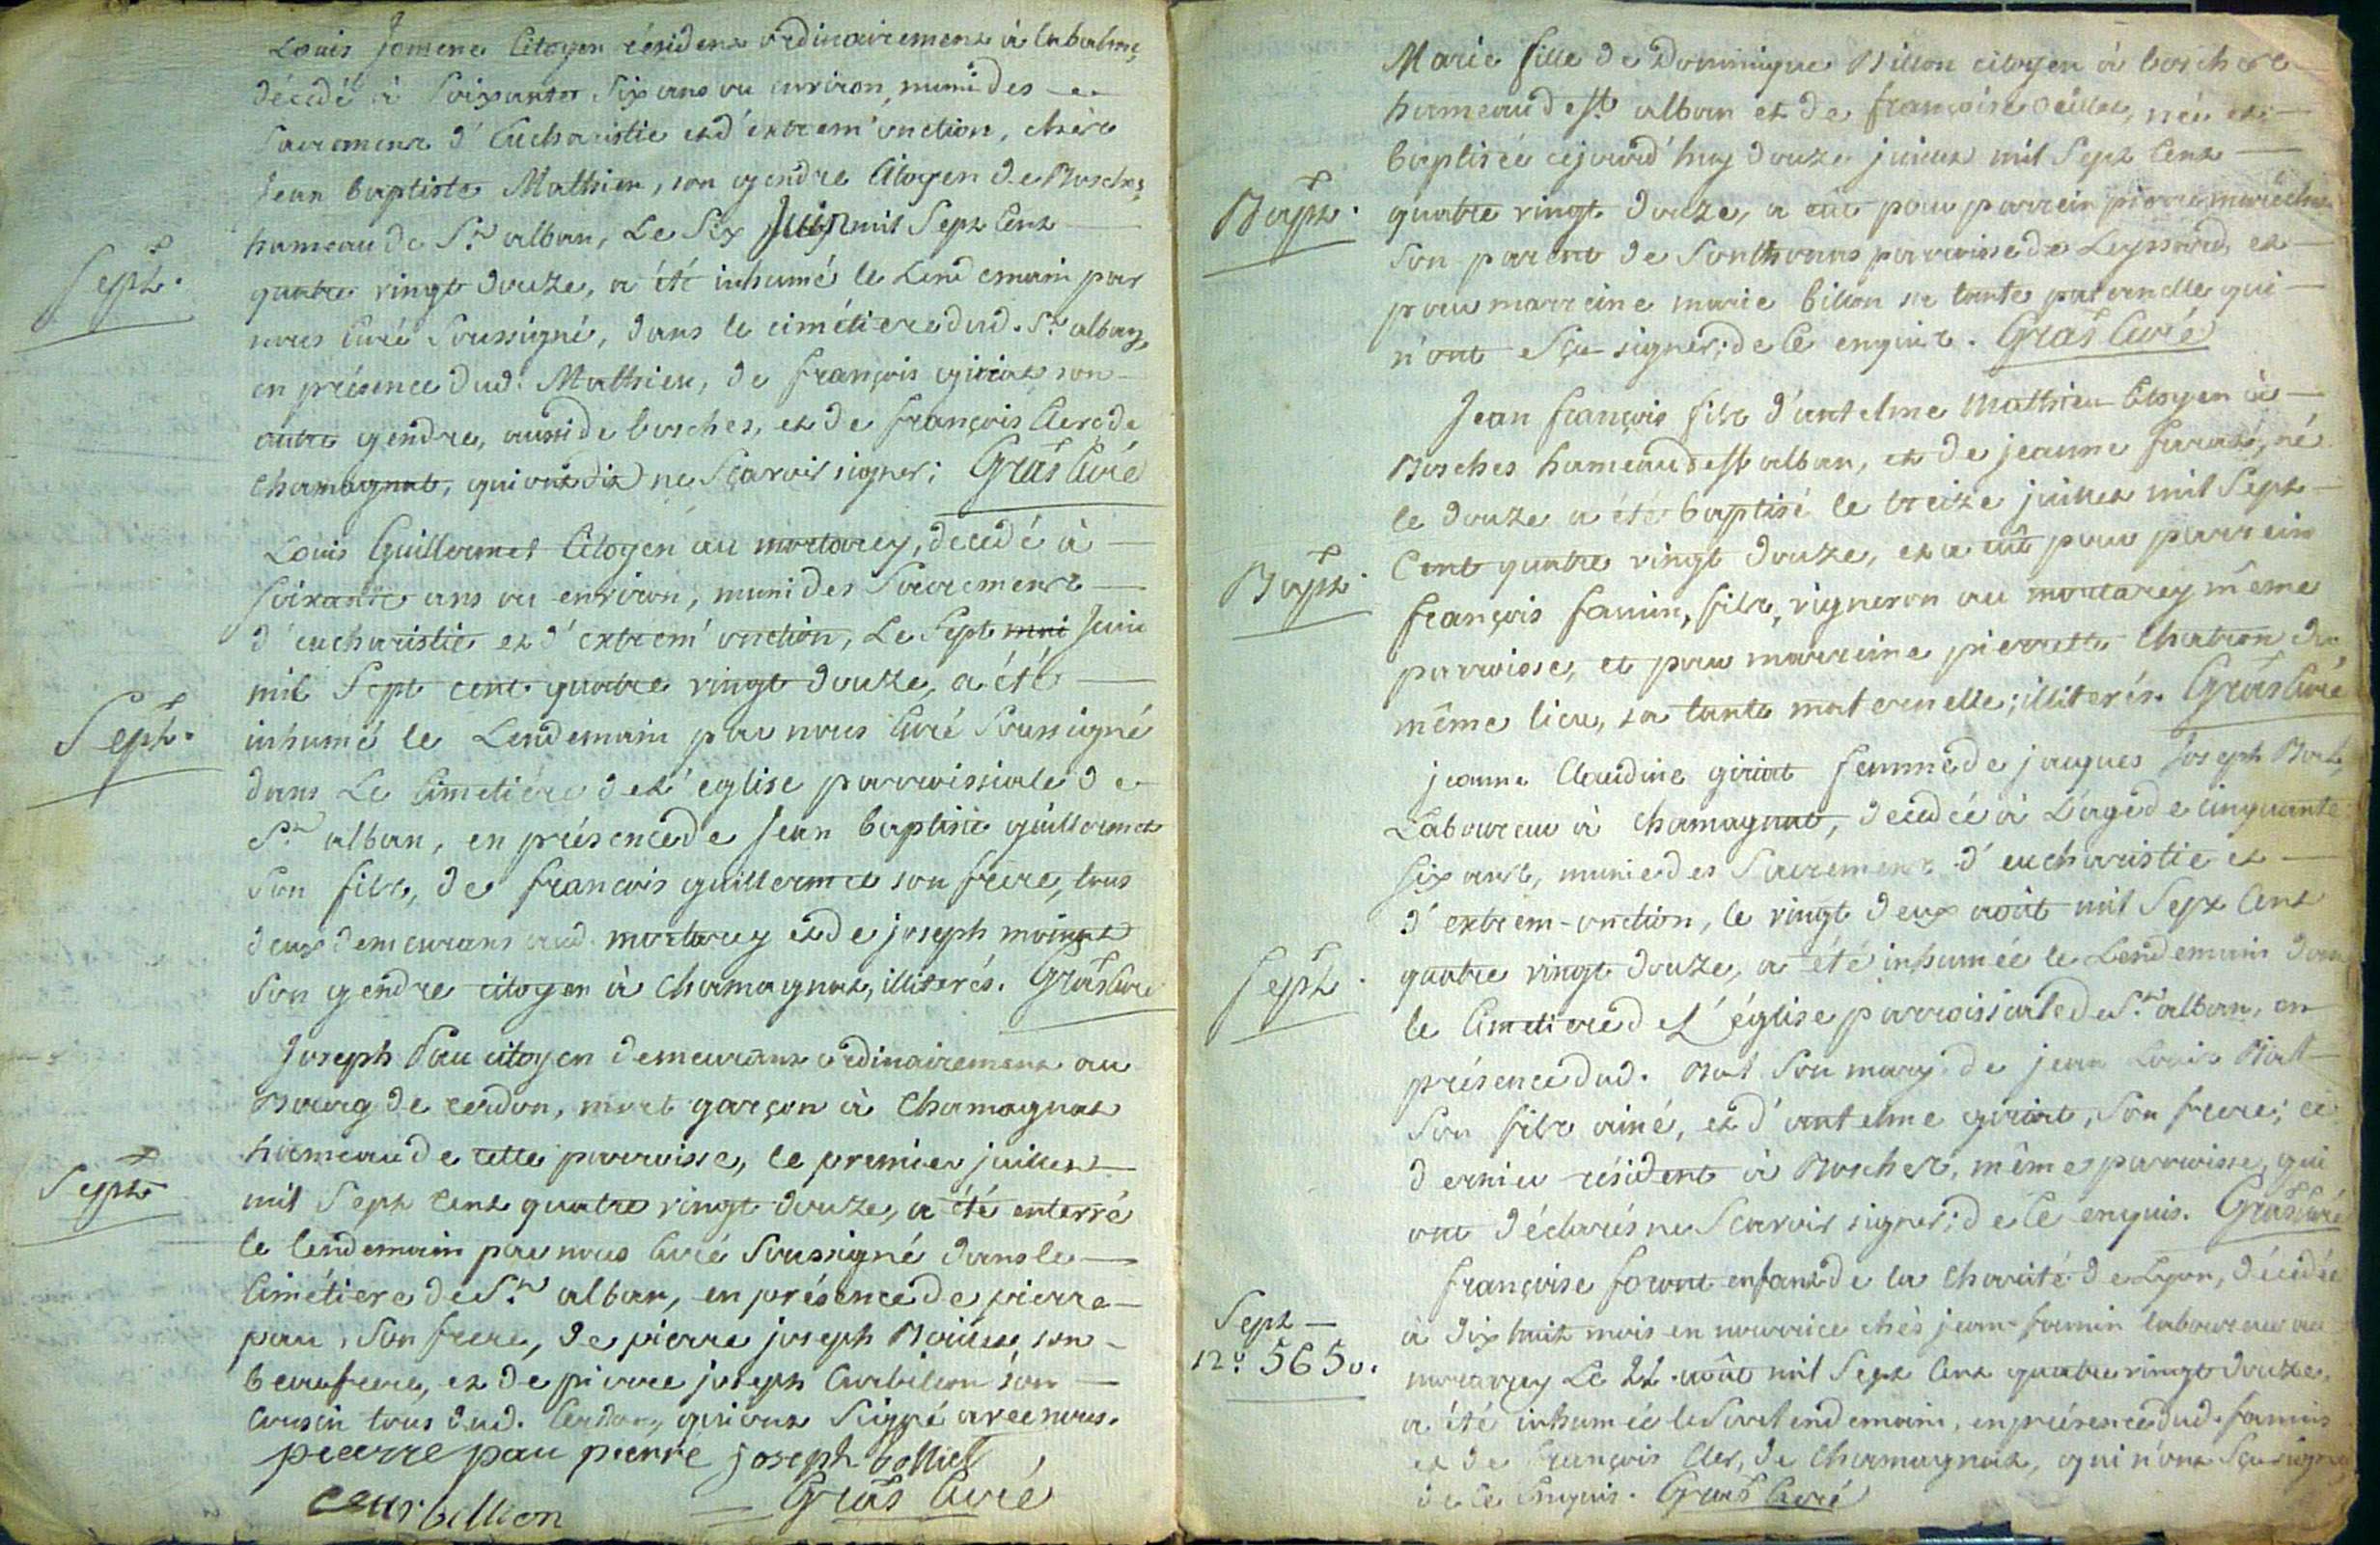 Louis Jomene Citoyen résidena ordinairement à labalme,
décédé à Soixante Six ans ou environ, muni des
Sacremens d'Eucharistie et d'extrem'onction, chèz
Jean baptiste Mathieu, son gendre Citoyen de Bosches,
hameau de St alban, Le Six Juin mil Sept Cent
Sept.
quatre vingt douze, a été inhumé le Lendemain par
nous Curé Soussigné, dans le cimétiere dud. St alban,
en présence dud. Mathieu, de françois giriat son
autre gendre, aussi de bosches, et de françois Clerc de
chamagnat, qui ont dit ne Sçavoir signer; Gras Curé
Louis Guillermet Citoyen au mortarey, décédé à
soixante ans ou environ, muni des Sacremens
d'eucharistie et d'extrem'onction, Le Sept mai Juin
mil Sept cent quatre vingt douze, a été
Sept.
inhumé le Lendemain par nous Curé Soussigné
dans Le Cimetiére de L'eglise parroissiale de
St alban, en présence de Jean baptiste guillermet
Son fils, de francois guillermet son frere, tous
deux demeurans aud. mortarey et de joseph
Son gendre citoyen à Chamagnat, illiterés. Gras Curé
Joseph Pau citoyen demeurant ordinairement au
Bourg de cerdon, mort garçon à Chamagnat
hameau de cette parroisse, le premier juillet
Sept
mil Sept Cent quatre vingt douze, a été enterré
le lendemain par nous Curé Soussigné dans le
Cimétiere de St alban, en présence de pierre
pau, Son frere, de pierre joseph Bolliet, son
beaufrere, et de pierre joseph Curbilion son
Cousin tous dud. Cerdon, qui ont Signé avec nous.
pieerre pau pierre joseph bolliet
Ceurbillion Gras Curé
Marie fille de Dominique Billon citoyen à bosches
hameau de st alban et de françoise née et
baptisée cejourd'huy douze juillet mil Sept Cent
Bapt.
quatre vingt douze, a eut pour parrein pierre marêchal
Son parent de Sonthonas parroisse de Leyssard, et
pour marreine marie billon sa tante paternelle qui
n'ont Sçu signer; de Ce enquis. Gras Curé
Jean françois fils d'antelme Mathieu Citoyen à
Bosches hameau de st alban, et de jeanne né
le douze a été baptisé le treize juillet mil Sept
Bapt.
Cent quatre vingt douze, et a eut pour parrein
françois famin, fils, vigneron au mortarey même
parroisse, et pour marreine pierrette Chatron du
même lieu, sa tante maternelle; illiterés. Gras Curé
jeanne Claudine giriat femme de jaques Joseph Bal,
Laboureur à chamagnat, décédée à L'age de cinquante
Six ans, munie des Sacremens d'eucharistie et
d'extrem-onction, le vingt deux août mil Sept Cent
Sept.
quatre vingt douze, a été inhumée le Lendemain dans
le Cimetiere de L'église parroissiale de St alban, en
présence dud. Bal Son mary de jean Louis Bal
Son fils ainé, et d'antelme giriat, Son frere; ce
dernier résident à Bosches, même parroisse, qui
ont déclarés ne Scavoir signer; de Ce enquis. Gras Curé
françoise foront enfant de la Charité de Lyon, décédée
Sept
à dix huit mois en nourrice chès jean famin laboureur au
12.° 5650.
mortarey Le 22 août mil Sept Cent quatre vingt douze,
a été inhumée le Surlendemain, en présence dud. famin
et de François Cler, de Chamagnat, qui n'ont Sçu signer
de Ce Enquis. Gras Curé